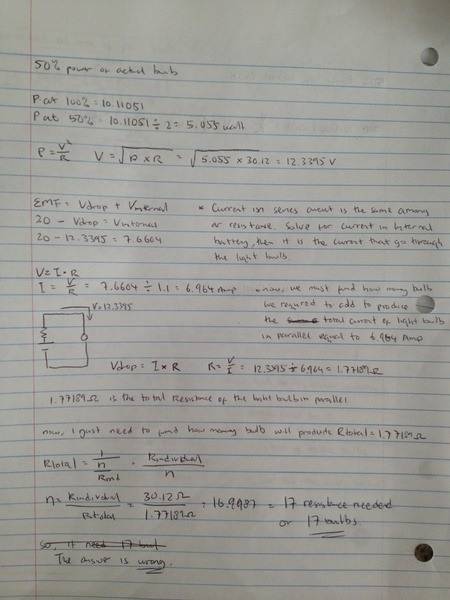 50% power on actual bulb
P at 100% = 10.11051
P at 50% = 10.11051 ÷ 2 = 5.055 watt
P = V²/R    V = √(P × R) = √(5.055 × 30.12) = 12.3395 V
EMF = Vdrop + Vinternal
20 - Vdrop = Vinternal
20 - 12.3395 = 7.6604
* Current in series circuit is the same among
or resistance. Solve for current in internal
battery, then it is the current that go through
the light bulb
V = I · R
I = V/R = 7.6604 ÷ 1.1 = 6.964 Amp
now, we must find how many bulb
we required to add to produce
the total current of light bulb
in parallel equal to 6.964 Amp
V = 12.3395
Vdrop = I × R    R = V/I = 12.3395 ÷ 6.964 = 1.77189 Ω
1.77189 Ω is the total resistance of the light bulb in parallel
now, I just need to find how many bulb will produce Rtotal = 1.77189 Ω
Rtotal = 1/(n/Rind) = Rindividual/n
n = Rindividual/Rtotal = 30.12 Ω/1.77189 Ω = 16.9987 = 17 resistance needed
or 17 bulbs
so, it need 17 bul
The answer is wrong.